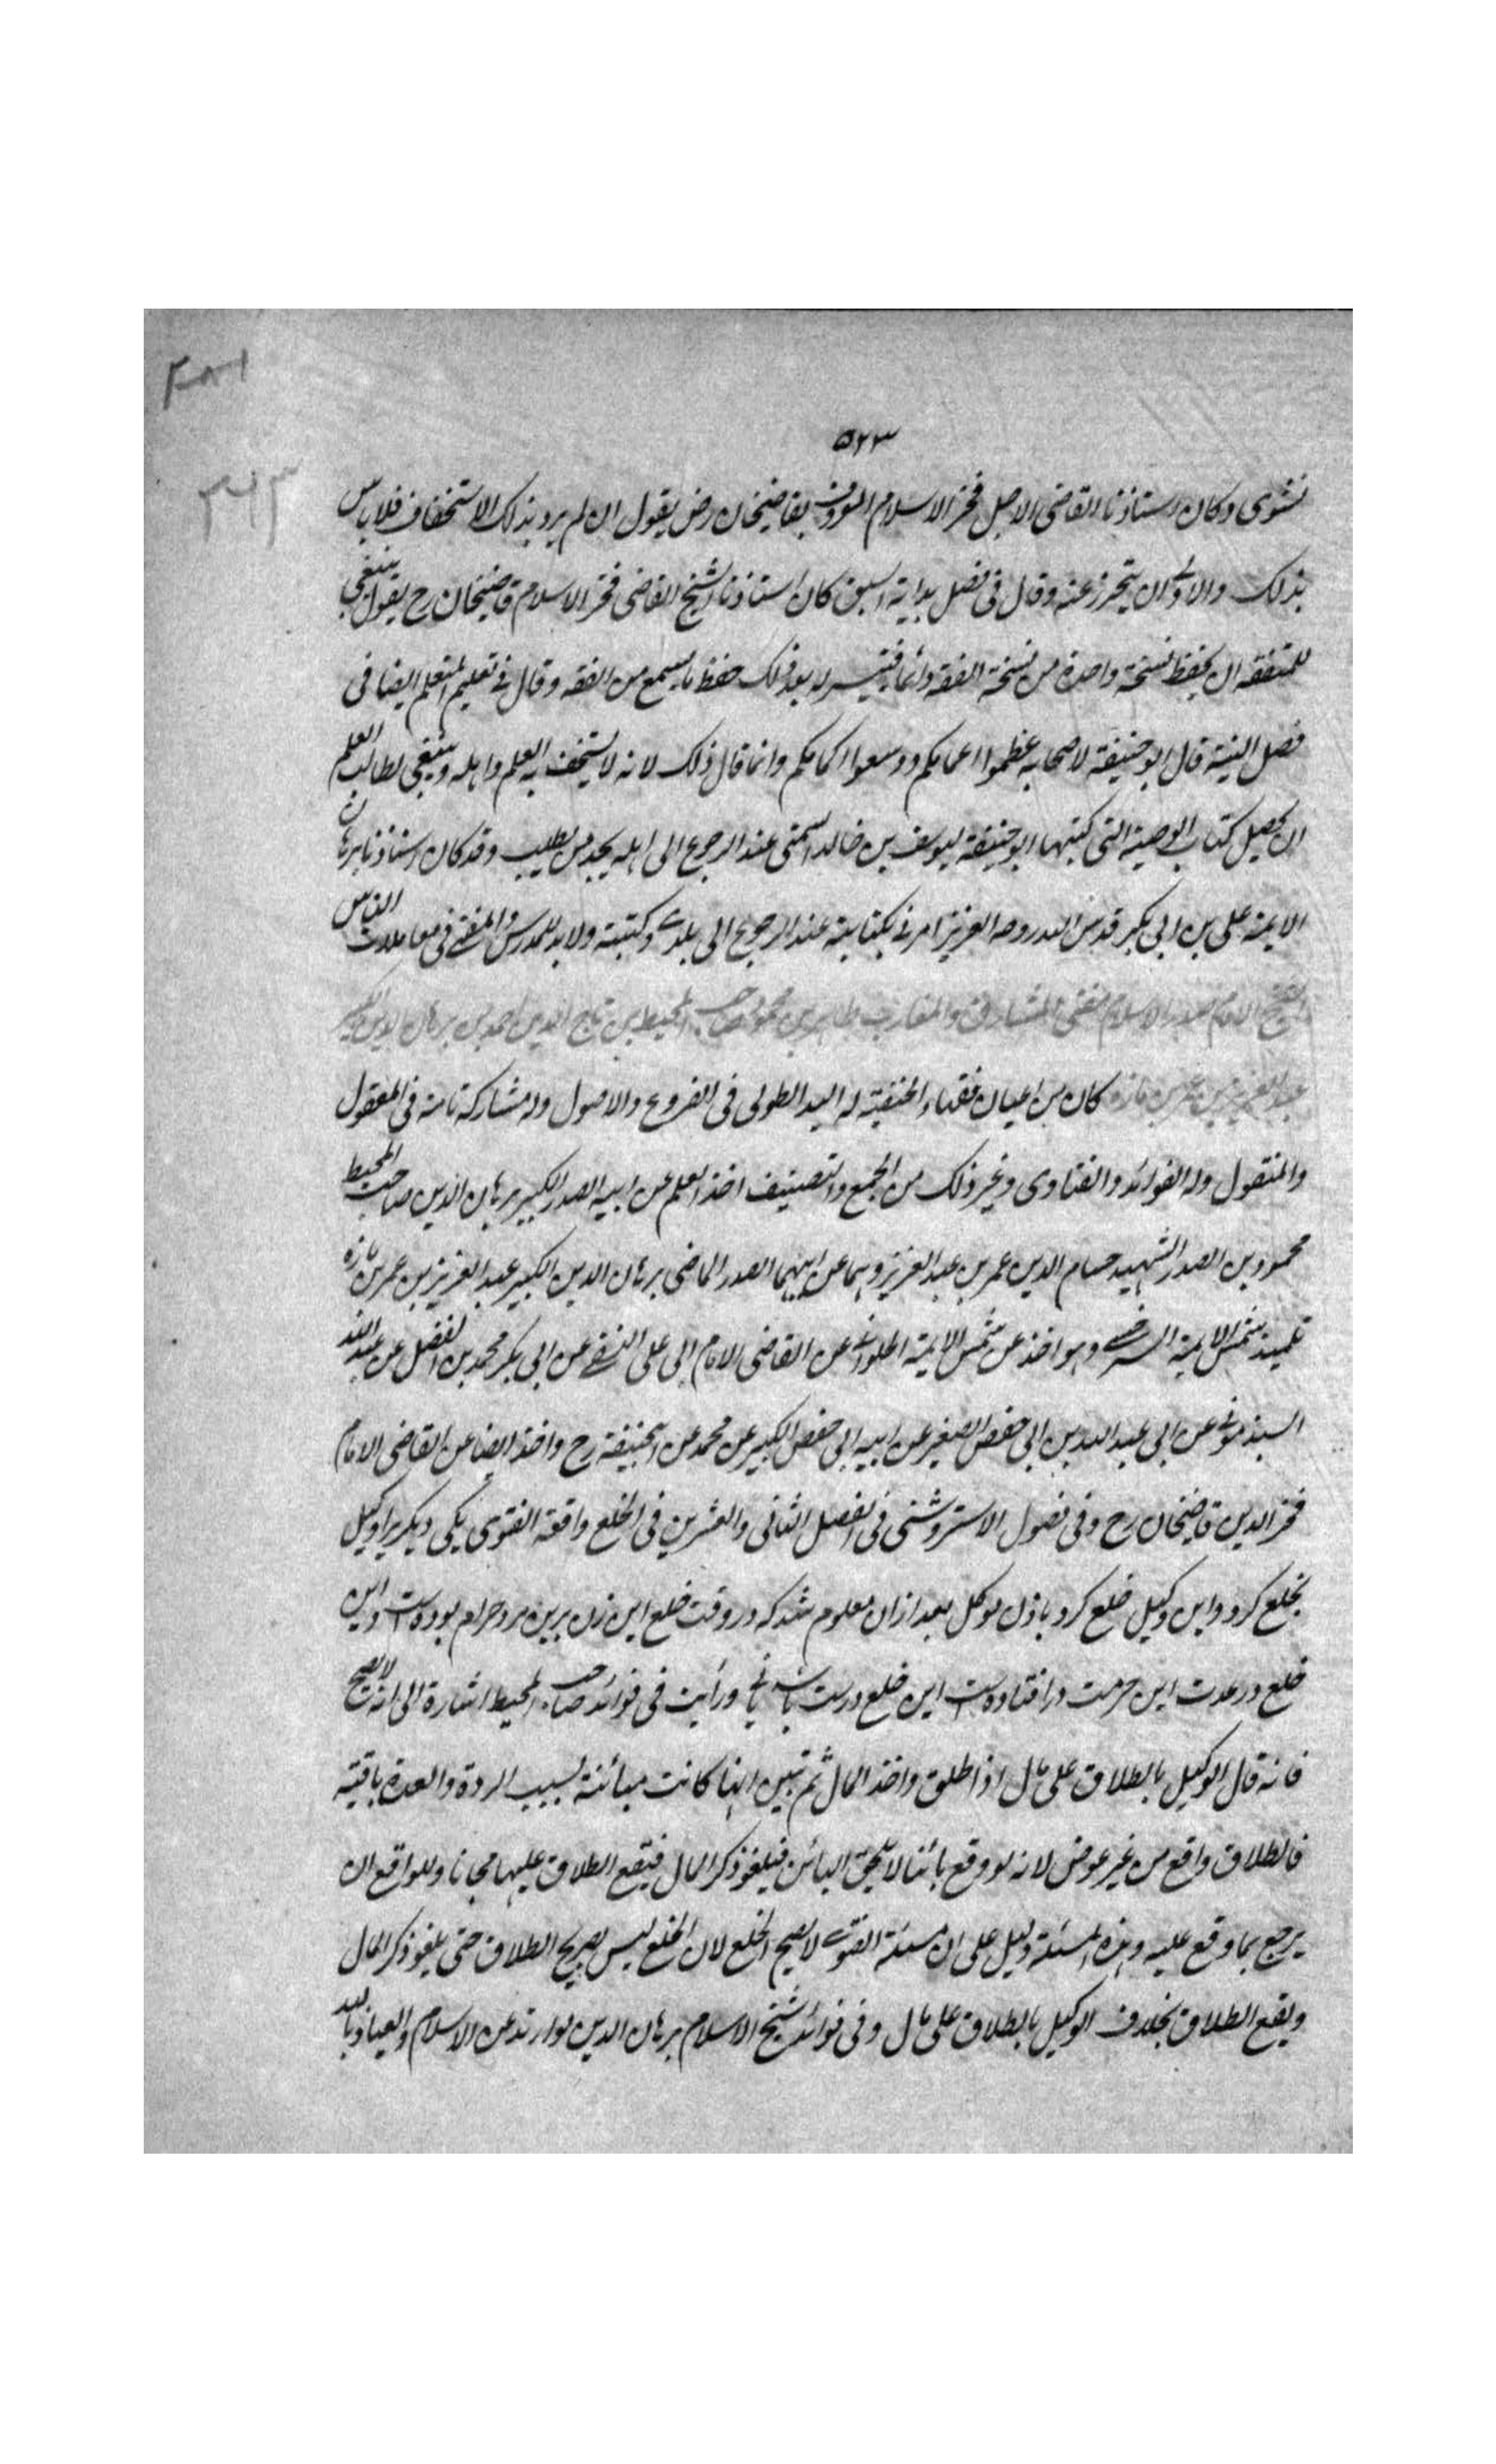 ٣٨١
٥٢٣
٣٤٣
نشوى وكان استاذنا القاضى الاجل فخر الاسلام المعروف بقاضيخان رض يقول ان لم يرد بذلك الاستخفاف فلا باس
بذلك والاولى ان يتحرز عنه وقال فى فصل بداية السبق كان استاذنا الشيخ القاضى فخر الاسلام قاضيخان رح يقول ينبغى
للمتفقه ان يحفظ نسخة واحدة من نسخة الفقه دائما فيتيسر له بعد ذلك حفظ ما يسمع من الفقه وقال فى تعليم المتعلم ايضا فى
فصل النية قال ابو حنيفة لاصحابه عظموا اعمامكم ووسعوا اكمامكم وانما قال ذلك لانه لا يستخف به العلم واهله وينبغى لطالب العلم
ان يحصل كتاب الوصية التى كتبها ابو حنيفة ليوسف بن خالد السمتى عند الرجوع الى اهله يجده من يطلب وقد كان استاذنا برهان
الايمة على بن ابى بكر قدس الله روحه العزيز امرنى بكتابته عند الرجوع الى بلدى وكتبته ولا بد للمدرس والمفتى فى معاملات الناس
الشيخ الامام صدر الاسلام مفتى المشارق والمغارب طاهر بن محمود صاحب المحيط ابن تاج الدين احمد بن برهان الدين الكبير
عبد العزيز بن عمر بن مازه كان من اعيان فقهاء الحنفية له اليد الطولى فى الفروع والاصول وله مشاركة تامة فى المعقول
والمنقول وله الفوائد والفتاوى وغير ذلك من الجمع والتصنيف اخذ العلم عن ابيه الصدر الكبير برهان الدين صاحب المحيط
محمود بن الصدر الشهيد حسام الدين عمر بن عبد العزيز وهما عن ابيهما الصدر الماضى برهان الدين الكبير عبد العزيز بن عمر بن مازه
تلميذ شمس الايمة السرخسى وهو اخذ عن شمس الايمة الحلوانى عن القاضى الامام ابى على النسفى عن ابى بكر محمد بن الفضل عن عبد الله
السبذمونى عن ابى عبد الله بن ابى حفص الصغير عن ابيه ابى حفص الكبير عن محمد عن ابيحنيفة رح واخذ ايضا عن القاضى الامام
فخر الدين قاضيخان رح وفى فصول الاستروشنى فى الفصل الثانى والعشرين فى الخلع واقعة الفتوى يكى ديكريرا وكيل
بخلع كرد واين وكيل خلع كرد باذن موكل بعد ازان معلوم شد كه در وقت خلع اين زن برين مرد حرام بوده است واين
خلع در عدت اين حرمت در افتاده است اين خلع درست باشد يا نى ورأيت فى فوائد صاحب المحيط اشارة الى انه لا يصح
فانه قال الوكيل بالطلاق على مال اذا طلق واخذ المال ثم تبين انها كانت مبائنة بسبب الردة والعدة باقية
فالطلاق واقع من غير عوض لانه لو وقع بائنا لا يلحق البائن فيلغو ذكر المال فيقع الطلاق عليها مجانا وللواقع ان
يرجع بما وقع عليه وهذه المسئلة دليل على ان مسئلة الفتوى لا يصح الخلع لان الخلع ليس بصريح الطلاق حتى يلغو ذكر المال
ويقع الطلاق بخلاف الوكيل بالطلاق على مال وفى فوائد شيخ الاسلام برهان الدين لو ارتد عن الاسلام والعياذ بالله